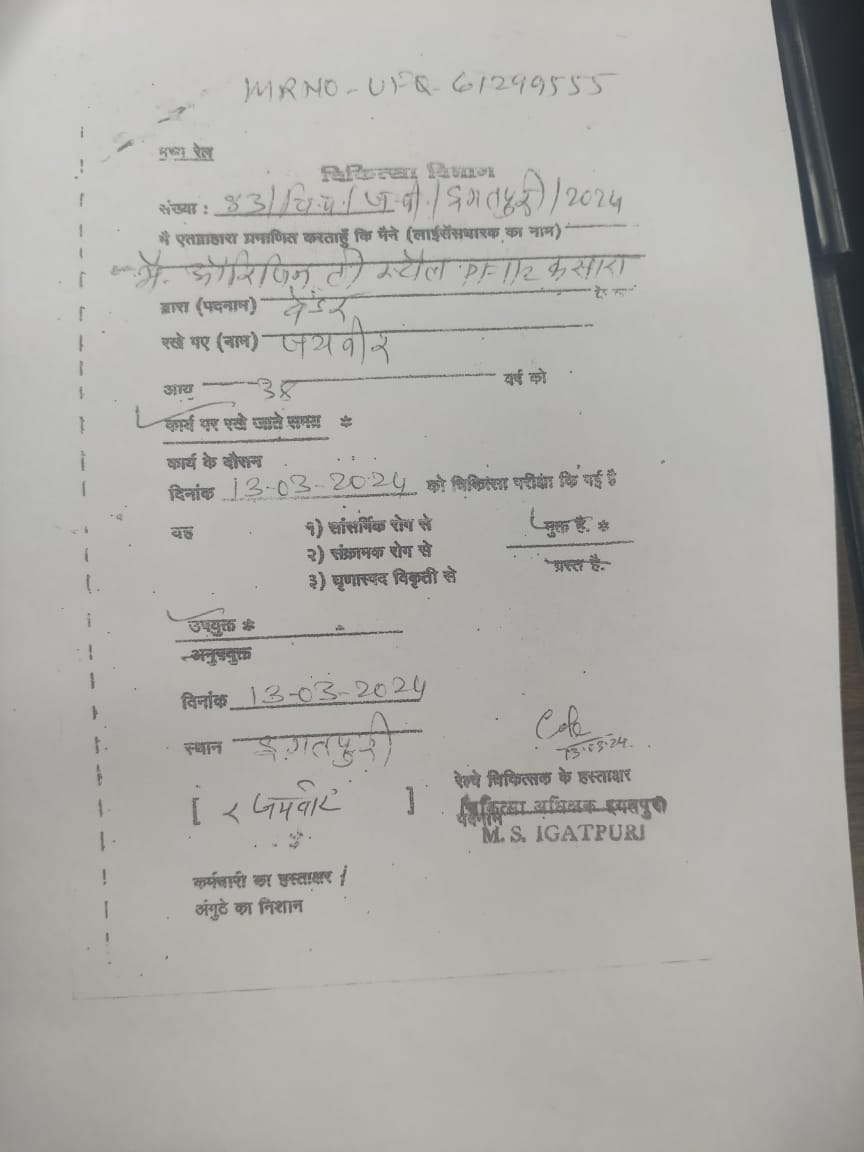 MRNO - UFQ - 61299555
मध्य रेल
चिकित्सा विभाग
संख्या : 83/चि.प./ज.वी/इगतपुरी/2024
मै एतद्वाहारा प्रमाणित करताहुँ कि मैने (लाईसेंसधारक का नाम)
मे. ओरिजिन टी स्टॉल PF 1/2 कसारा
द्वारा (पदनाम) वेंडर
रखे गए (नाम) जयवीर
आयु 38 वर्ष को
कार्य पर रखे जाते समय *
कार्य के दौरान
दिनांक 13-03-2024 को चिकित्सा परीक्षा कि गई है
वह १) सांसर्गिक रोग से मुक्त है. *
२) संक्रामक रोग से
३) घृणास्पद विकृती से ग्रस्त है.
उपयुक्त *
अनुपयुक्त
दिनांक 13-03-2024
स्थान इगतपुरी
13.03.24
रेल्वे चिकित्सक के हस्ताक्षर
[ जयवीर ]
चिकित्सा अधिक्षक इगतपुरी
पदनाम
M. S. IGATPURI
कर्मचारी का हस्ताक्षर /
अंगुठे का निशान